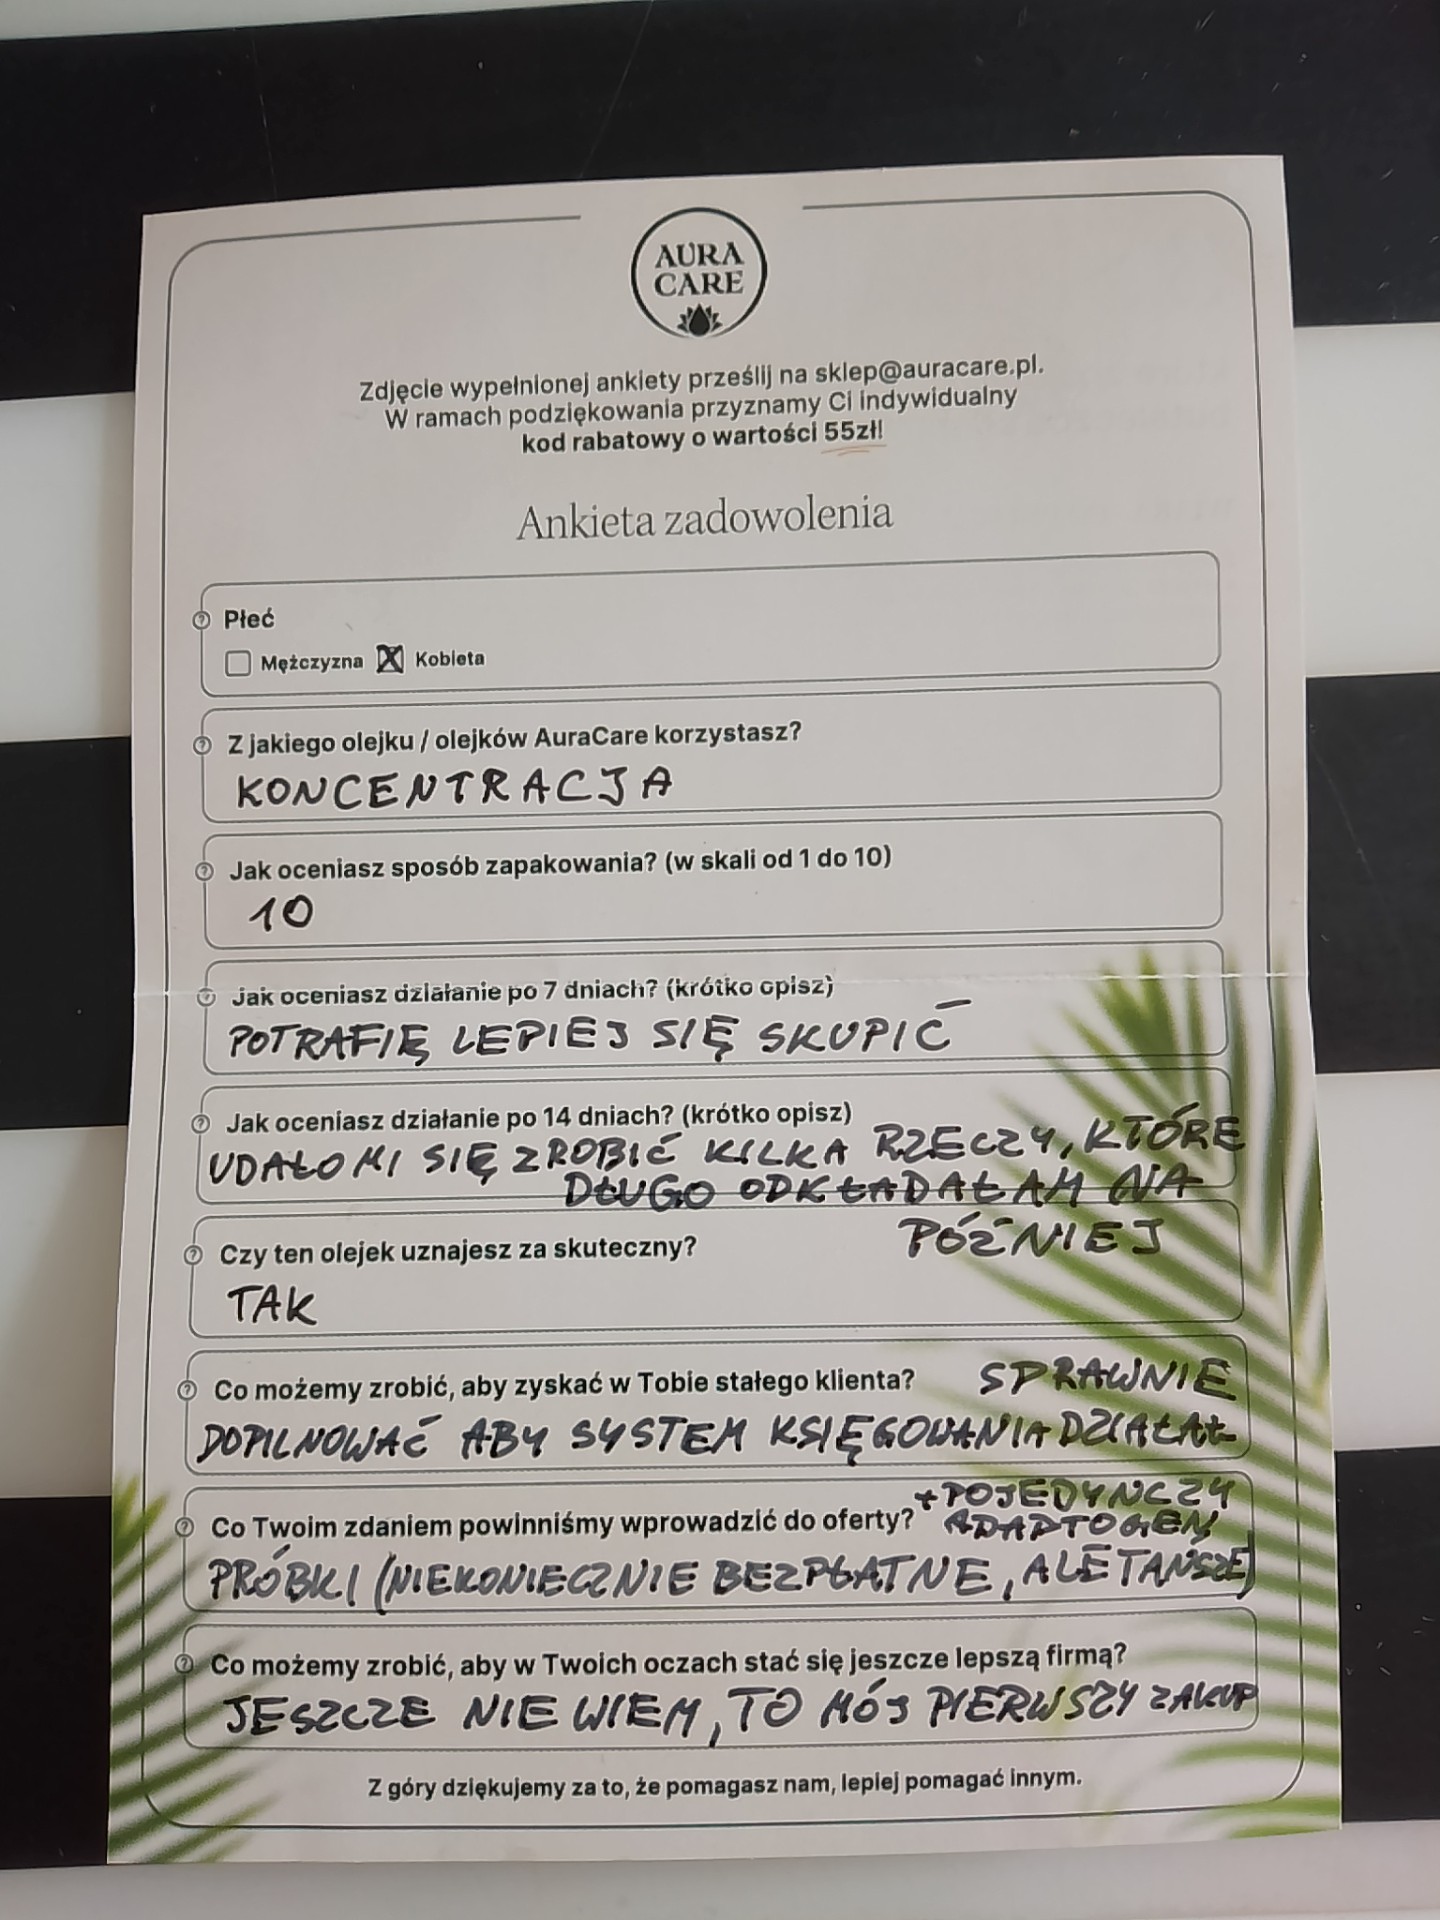 AURA
CARE
Zdjęcie wypełnionej ankiety prześlij na sklep@auracare.pl.
W ramach podziękowania przyznamy Ci indywidualny
kod rabatowy o wartości 55zł!
Ankieta zadowolenia
Płeć
Mężczyzna X Kobieta
Z jakiego olejku / olejków AuraCare korzystasz?
KONCENTRACJA
Jak oceniasz sposób zapakowania? (w skali od 1 do 10)
10
Jak oceniasz działanie po 7 dniach? (krótko opisz)
POTRAFIĘ LEPIEJ SIĘ SKUPIĆ
Jak oceniasz działanie po 14 dniach? (krótko opisz)
UDAŁO MI SIĘ ZROBIĆ KILKA RZECZY, KTÓRE
DŁUGO ODKŁADAŁAM NA
PÓŹNIEJ
Czy ten olejek uznajesz za skuteczny?
TAK
Co możemy zrobić, aby zyskać w Tobie stałego klienta?
SPRAWNIE
DOPILNOWAĆ ABY SYSTEM KSIĘGOWANIA DZIAŁAŁ
Co Twoim zdaniem powinniśmy wprowadzić do oferty?
+ POJEDYNCZY
ADAPTOGEN
PRÓBKI (NIEKONIECZNIE BEZPŁATNE, ALE TAŃSZE)
Co możemy zrobić, aby w Twoich oczach stać się jeszcze lepszą firmą?
JESZCZE NIE WIEM, TO MÓJ PIERWSZY ZAKUP
Z góry dziękujemy za to, że pomagasz nam, lepiej pomagać innym.